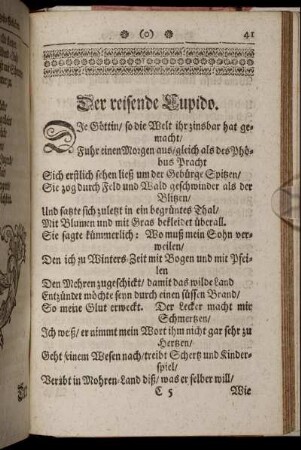 (0) 41
Der reisende Cupido.
DJe Göttin/ so die Welt ihr zinsbar hat ge-
macht/
Fuhr einen Morgen aus/ gleich als des Phö-
bus Pracht
Sich erstlich sehen ließ um der Gebürge Spitzen/
Sie zog durch Feld und Wald geschwinder als der
Blitzen/
Und satzte sich zuletzt in ein begrüntes Thal/
Mit Blumen und mit Gras bekleidet überall.
Sie sagte kümmerlich: Wo muß mein Sohn ver-
weilen/
Den ich zu Winters-Zeit mit Bogen und mit Pfei-
len
Den Mohren zugeschickt/ damit das wilde Land
Entzündet möchte seyn durch einen süssen Brand/
So meine Glut erweckt. Der Lecker macht mir
Schmertzen/
Ich weß/ er nimmt mein Wort ihm nicht gar sehr zu
Hertzen/
Geht seinem Wesen nach/ treibt Schertz und Kinder-
spiel/
Verübt in Mohren-Land diß/ was er selber will/
C 5 Wie